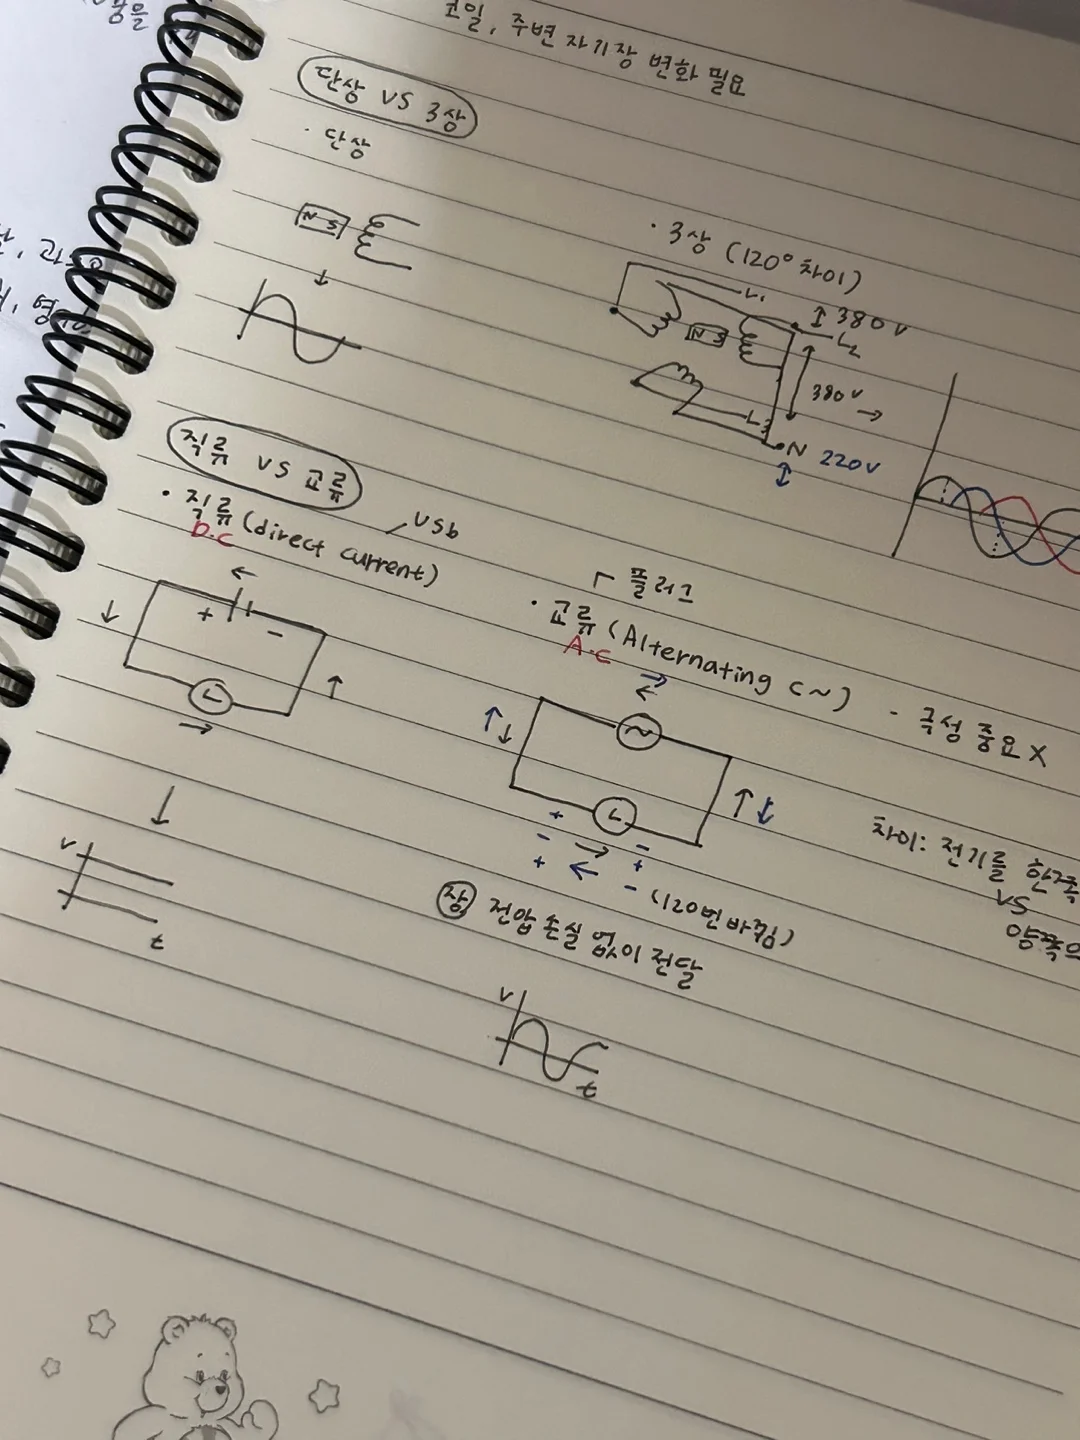 코일, 주변 자기장 변화 필요
단상 VS 3상
· 단상
N S
· 3상 (120° 차이)
L1
380V
L2
N S
380V →
L3
N 220V
직류 VS 교류
usb
· 직류 (direct current)
D.C
+ -
L
플러그
· 교류 (Alternating (~)
A.C
- 극성 중요 X
~
L
+ -
- +
+ - (120번 바뀜)
차이: 전기를 한쪽
VS
양쪽으
장 전압 손실 없이 전달
V
t
V
t